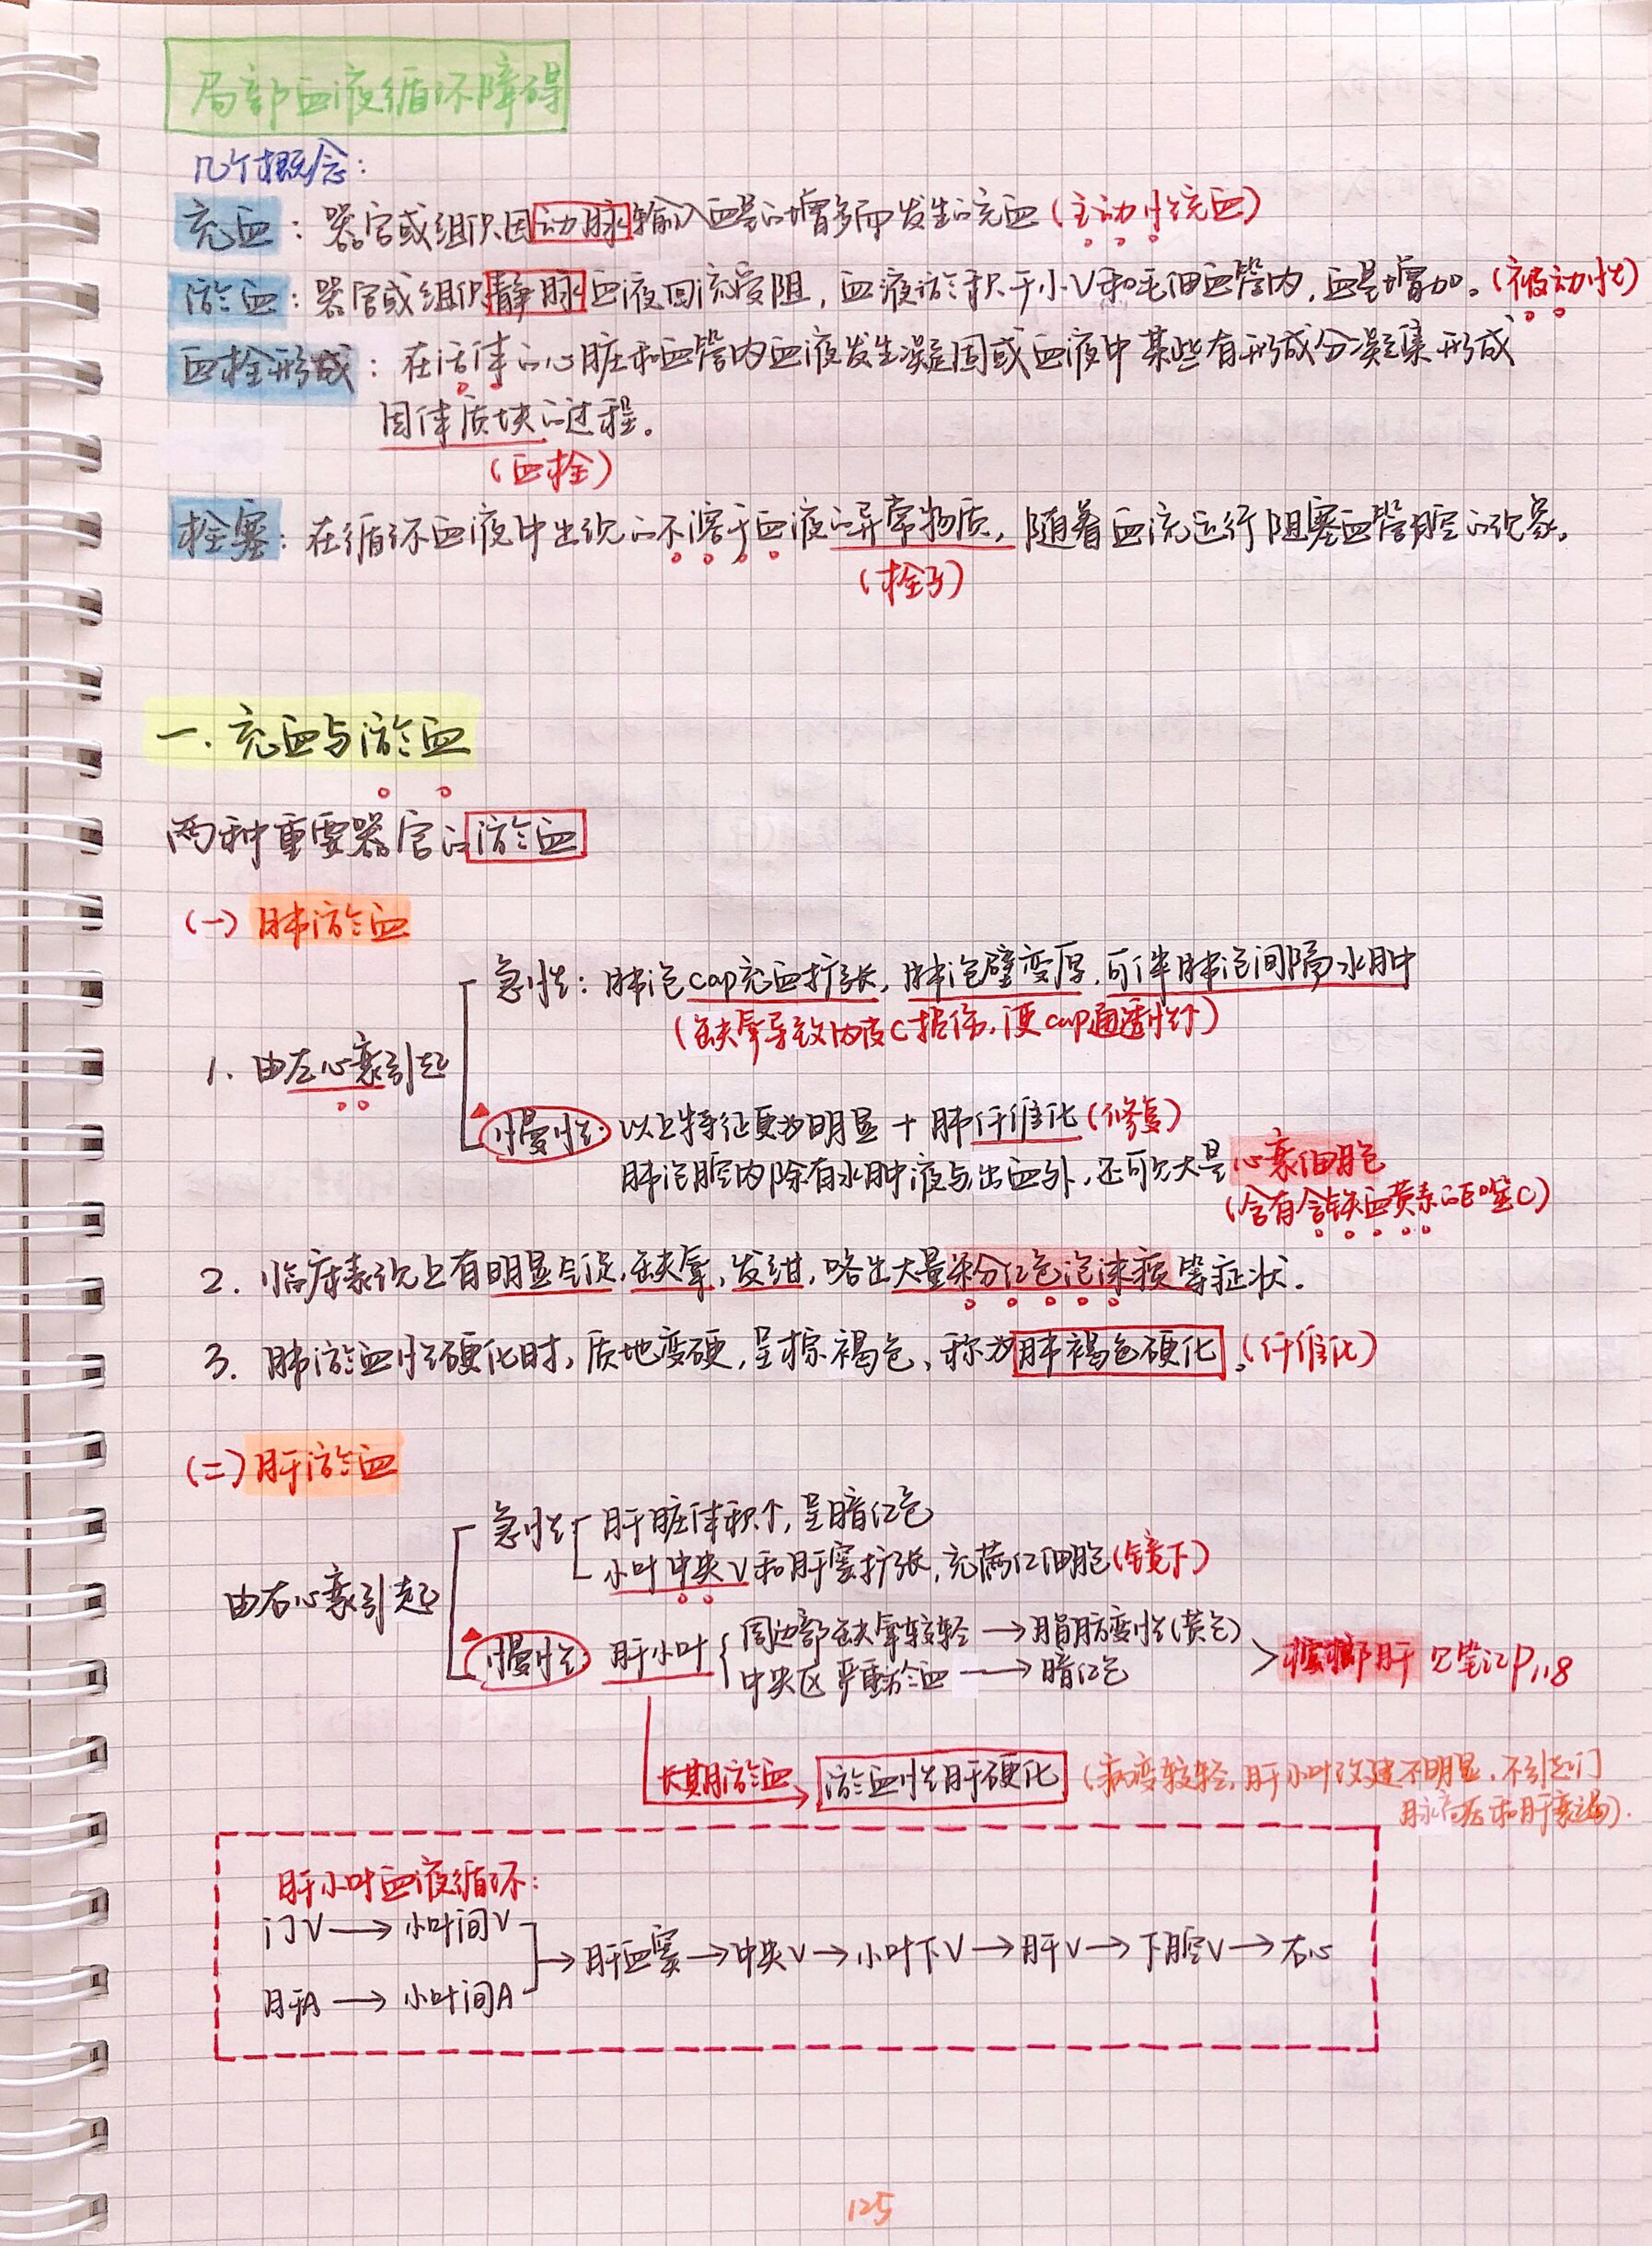 局部血液循环障碍
几个概念:
充血: 器官或组织因动脉输入血量的增多而发生的充血(主动性充血)
淤血: 器官或组织静脉血液回流受阻, 血液淤积于小V和毛细血管内, 血量增加。(被动性)
血栓形成: 在活体的心脏和血管内血液发生凝固或血液中某些有形成分凝集形成
固体质块的过程.
(血栓)
栓塞: 在循环血液中出现的不溶于血液的异常物质, 随着血流运行阻塞血管腔的现象。
(栓子)
一. 充血与淤血
两种重要器官的淤血
(一) 肺淤血
急性: 肺泡cap充血扩张, 肺泡壁变厚, 可伴肺泡间隔水肿
(缺氧导致内皮C损伤, 使cap通透性↑)
1. 由左心衰引起
慢性: 以上特征更为明显 + 肺纤维化(修复)
肺泡腔内除有水肿液与出血外, 还可见大量心衰细胞
(含有含铁血黄素的巨噬C)
2. 临床表现上有明显气促, 缺氧, 发绀, 咯出大量粉红色泡沫痰等症状.
3. 肺淤血性硬化时, 质地变硬, 呈棕褐色, 称为肺褐色硬化。(纤维化)
(二) 肝淤血
急性 肝脏体积↑, 呈暗红色
小叶中央V和肝窦扩张, 充满红细胞(镜下)
由右心衰引起
慢性: 肝小叶 { 周边部缺氧较轻 → 脂肪变性(黄色)
中央区严重淤血 → 暗红色
> 槟榔肝 见笔记P118
长期淤血→ 淤血性肝硬化 (病变较轻, 肝小叶改建不明显, 不引起门
脉高压和肝衰竭).
肝小叶血液循环:
门V → 小叶间V
→ 肝血窦 → 中央V → 小叶下V → 肝V → 下腔V → 右心
肝A → 小叶间A
125